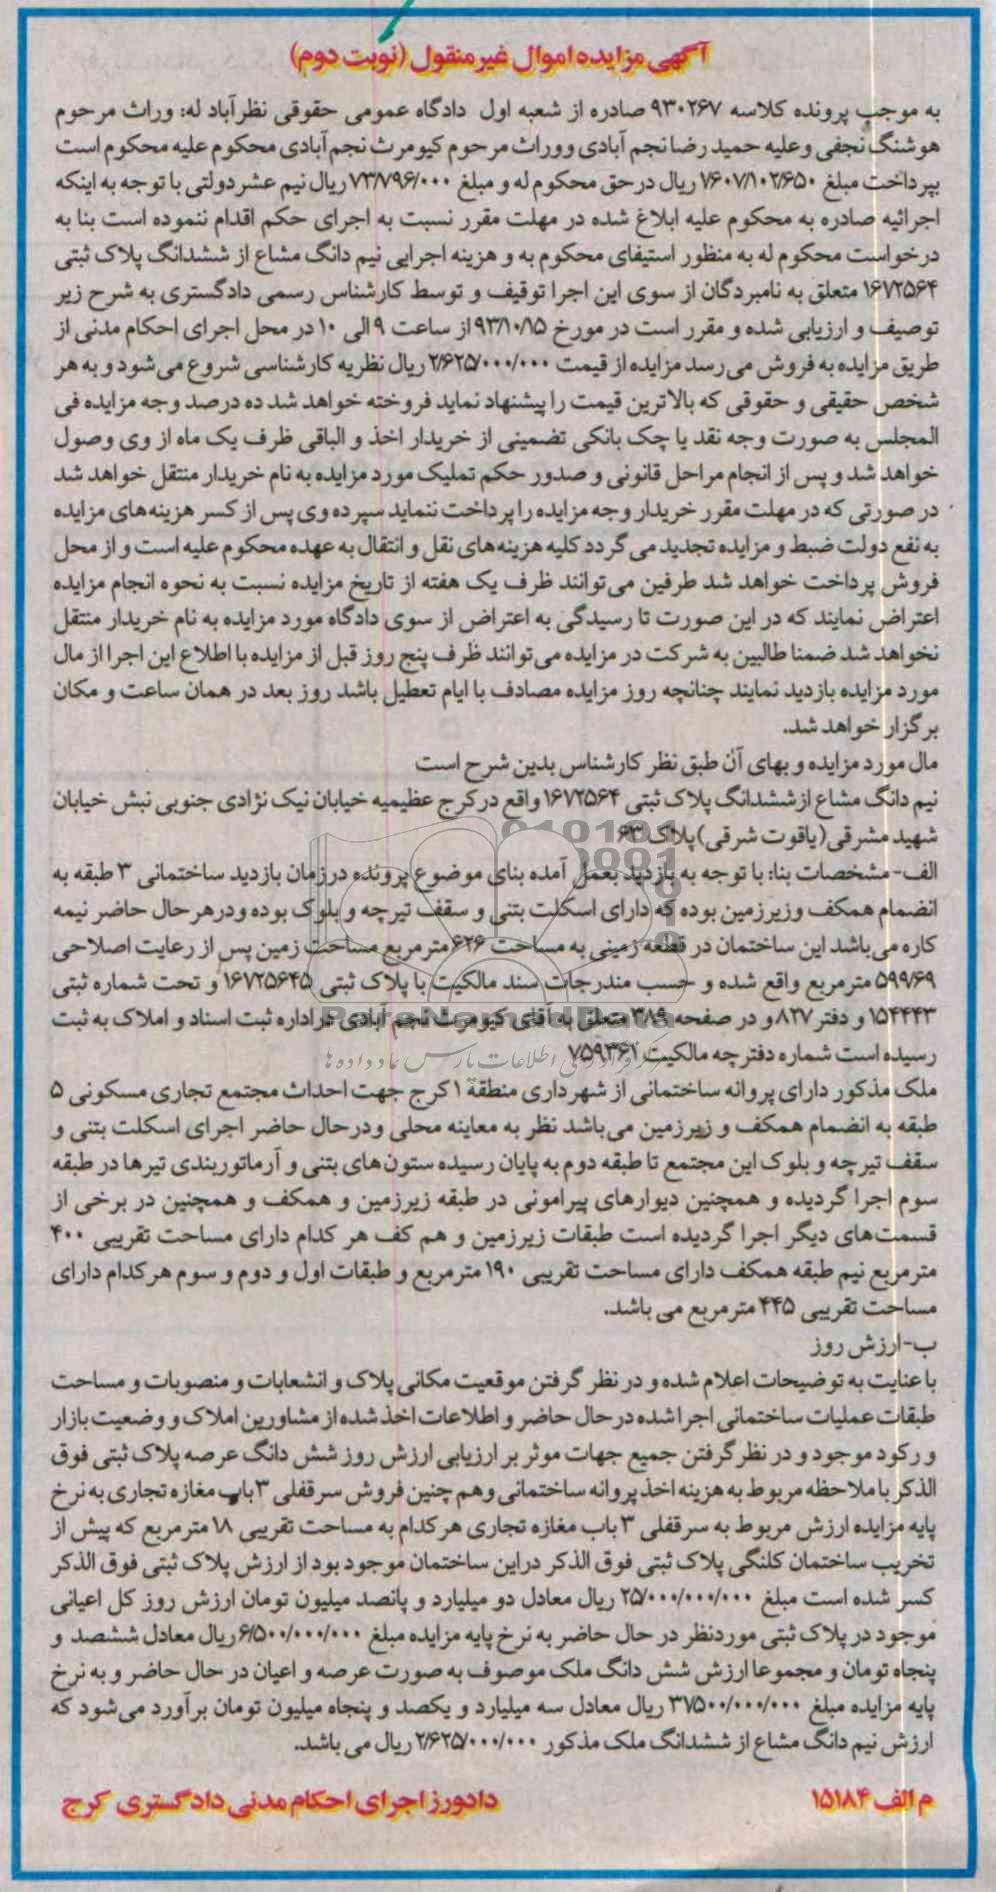 آگهی مزایده اموال غیرمنقول (نوبت دوم)
به موجب پرونده کلاسه ۹۳۰۲۶۷ صادره از شعبه اول دادگاه عمومی حقوقی نظرآباد له: وراث مرحوم
هوشنگ نجفی وعلیه حمید رضا نجم آبادی ووراث مرحوم کیومرث نجم آبادی محکوم علیه محکوم است
بپرداخت مبلغ ۷/۶۰۷/۱۰۲/۶۵۰ ریال درحق محکوم له و مبلغ ۷۳/۷۹۶/۰۰۰ ریال نیم عشردولتی با توجه به اینکه
اجرائیه صادره به محکوم علیه ابلاغ شده در مهلت مقرر نسبت به اجرای حکم اقدام ننموده است بنا به
درخواست محکوم له به منظور استیفای محکوم به و هزینه اجرایی نیم دانگ مشاع از ششدانگ پلاک ثبتی
۱۶۷۲۵۶۴ متعلق به نامبردگان از سوی این اجرا توقیف و توسط کارشناس رسمی دادگستری به شرح زیر
توصیف و ارزیابی شده و مقرر است در مورخ ۹۳/۱۰/۱۵ از ساعت ۹ الی ۱۰ در محل اجرای احکام مدنی از
طریق مزایده به فروش می رسد مزایده از قیمت ۲/۶۲۵/۰۰۰/۰۰۰ ریال نظریه کارشناسی شروع می شود و به هر
شخص حقیقی و حقوقی که بالاترین قیمت را پیشنهاد نماید فروخته خواهد شد ده درصد وجه مزایده فی
المجلس به صورت وجه نقد یا چک بانکی تضمینی از خریدار اخذ و الباقی ظرف یک ماه از وی وصول
خواهد شد و پس از انجام مراحل قانونی و صدور حکم تملیک مورد مزایده به نام خریدار منتقل خواهد شد
در صورتی که در مهلت مقرر خریدار وجه مزایده را پرداخت ننماید سپرده وی پس از کسر هزینه های مزایده
به نفع دولت ضبط و مزایده تجدید می گردد کلیه هزینه های نقل و انتقال به عهده محکوم علیه است و از محل
فروش پرداخت خواهد شد طرفین می توانند ظرف یک هفته از تاریخ مزایده نسبت به نحوه انجام مزایده
اعتراض نمایند که در این صورت تا رسیدگی به اعتراض از سوی دادگاه مورد مزایده به نام خریدار منتقل
نخواهد شد ضمنا طالبین به شرکت در مزایده می توانند ظرف پنج روز قبل از مزایده با اطلاع این اجرا از مال
مورد مزایده بازدید نمایند چنانچه روز مزایده مصادف با ایام تعطیل باشد روز بعد در همان ساعت و مکان
برگزار خواهد شد.
مال مورد مزایده و بهای آن طبق نظر کارشناس بدین شرح است
نیم دانگ مشاع ازششدانگ پلاک ثبتی ۱۶۷۲۵۶۴ واقع درکرج عظیمیه خیابان نیک نژادی جنوبی نبش خیابان
شهید مشرقی(یاقوت شرقی)پلاک ۶۳
الف-مشخصات بنا: با توجه به بازدید بعمل آمده بنای موضوع پرونده درزمان بازدید ساختمانی ۳ طبقه به
انضمام همکف وزیرزمین بوده که دارای اسکلت بتنی و سقف تیرچه و بلوک بوده ودرهرحال حاضر نیمه
کاره می باشد این ساختمان در قطعه زمینی به مساحت ۶۲۶ مترمربع مساحت زمین پس از رعایت اصلاحی
۵۹۹/۶۹ مترمربع واقع شده و حسب مندرجات سند مالکیت با پلاک ثبتی ۱۶۷۲۵۶۴۵ و تحت شماره ثبتی
۱۵۴۴۴۳ و دفتر ۸۲۷ و در صفحه ۳۸۹ متعلق به آقای کیومرث نجم آبادی در اداره ثبت اسناد و املاک به ثبت
رسیده است شماره دفترچه مالکیت ۷۵۹۳۶۱
ParsNamadData
مرکز فرآوری اطلاعات پارس نماد داده ها
ملک مذکور دارای پروانه ساختمانی از شهرداری منطقه ۱ کرج جهت احداث مجتمع تجاری مسکونی ۵
طبقه به انضمام همکف و زیرزمین می باشد نظر به معاینه محلی ودرحال حاضر اجرای اسکلت بتنی و
سقف تیرچه و بلوک این مجتمع تا طبقه دوم به پایان رسیده ستون های بتنی و آرماتوربندی تیرها در طبقه
سوم اجرا گردیده و همچنین دیوارهای پیرامونی در طبقه زیرزمین و همکف و همچنین در برخی از
قسمت های دیگر اجرا گردیده است طبقات زیرزمین و هم کف هر کدام دارای مساحت تقریبی ۴۰۰
مترمربع نیم طبقه همکف دارای مساحت تقریبی ۱۹۰ مترمربع و طبقات اول و دوم و سوم هرکدام دارای
مساحت تقریبی ۴۴۵ مترمربع می باشد.
ب-ارزش روز
با عنایت به توضیحات اعلام شده و در نظر گرفتن موقعیت مکانی پلاک و انشعابات و منصوبات و مساحت
طبقات عملیات ساختمانی اجرا شده درحال حاضر و اطلاعات اخذ شده از مشاورین املاک و وضعیت بازار
و رکود موجود و در نظرگرفتن جمیع جهات موثر بر ارزیابی ارزش روز شش دانگ عرصه پلاک ثبتی فوق
الذکر با ملاحظه مربوط به هزینه اخذ پروانه ساختمانی وهم چنین فروش سرقفلی ۳ باب مغازه تجاری به نرخ
پایه مزایده ارزش مربوط به سرقفلی ۳ باب مغازه تجاری هرکدام به مساحت تقریبی ۱۸ مترمربع که پیش از
تخریب ساختمان کلنگی پلاک ثبتی فوق الذکر دراین ساختمان موجود بود از ارزش پلاک ثبتی فوق الذکر
کسر شده است مبلغ ۲۵/۰۰۰/۰۰۰/۰۰۰ ریال معادل دو میلیارد و پانصد میلیون تومان ارزش روز کل اعیانی
موجود در پلاک ثبتی موردنظر در حال حاضر به نرخ پایه مزایده مبلغ ۶/۵۰۰/۰۰۰/۰۰۰ ریال معادل ششصد و
پنجاه تومان و مجموعا ارزش شش دانگ ملک موصوف به صورت عرصه و اعیان در حال حاضر و به نرخ
پایه مزایده مبلغ ۳۱/۵۰۰/۰۰۰/۰۰۰ ریال معادل سه میلیارد و یکصد و پنجاه میلیون تومان برآورد می شود که
ارزش نیم دانگ مشاع از ششدانگ ملک مذکور ۲/۶۲۵/۰۰۰/۰۰۰ ریال می باشد.
م الف ۱۵۱۸۴
دادورز اجرای احکام مدنی دادگستری کرج